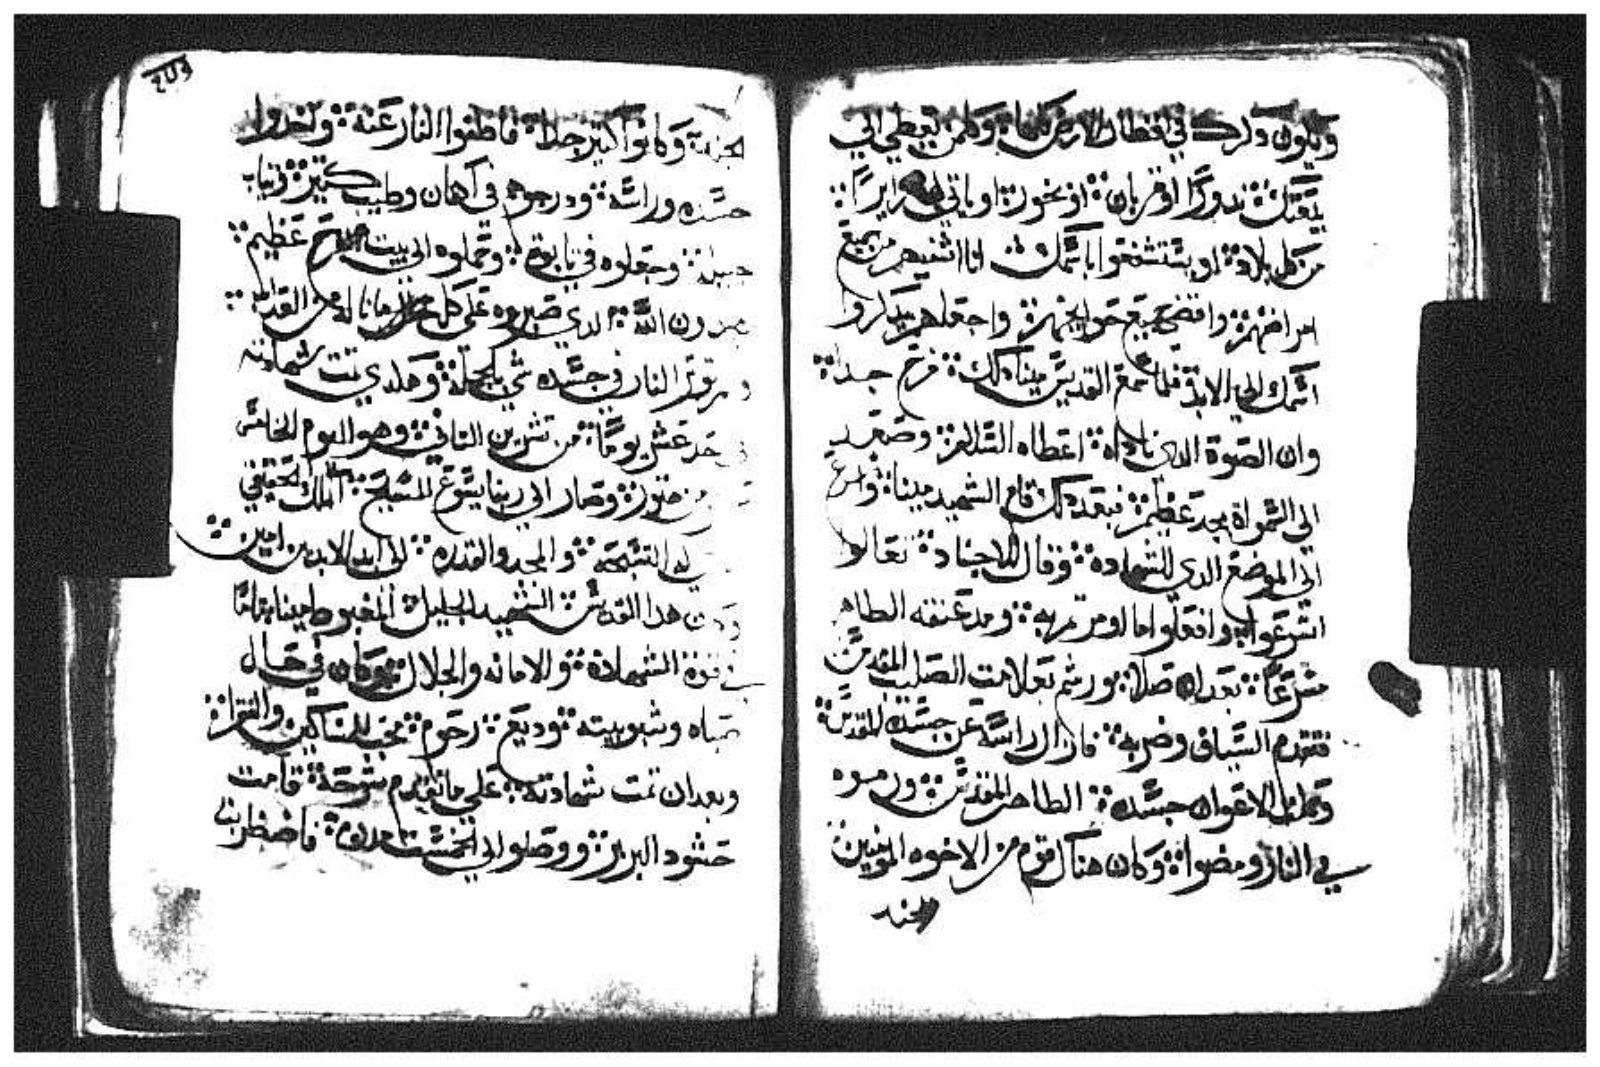 ويكون دكرك في اقطار الارض كلها وكلمن يعطي الي
بيعتك ندورًا او قربان او بخور او ياتي زايرًا
من كل بلاد او يستشفعوا باسمك انا اشفيهم من جميع
امراضهم واقضي جميع حوايجهم واجعلهم يدكروا
اسمك الي الابد فلما سمع القديس مينا دلك فرح جدا
وان الصوة الدي ناداه اعطاه السلام وصعد
الي السمواة بمجد عظيم فبعد دلك قام الشهيد مينا
الي الموضع الدي للشهاده وقال للاجناد تعالوا
اسرعوا وافعلوا ما امرتم به ومد عنقه الطاهر
مسرعًا بعد ان صلا ورشم بعلامت الصليب المقدس
فتقدم السياف وضربه فازال راسه عن جسده المقدس
الاعوان جسده الطاهر المقدس ورموه
في النار ومضوا وكان هناك قوم من الاخوه المومنين
الجند
وكانوا كتير جدا فاطفوا النار عنه واخدوا
جسده وراسه ودرجوه في اكفان وطيب كتير وتياب
وجعلوه في تابوت وحملوه الي بيت عظيم
يمجدون الله الدي صبروه علي كل ما ناله من القديس
النار في جسده شي بالجمله وهكدي تمت شهادته
عشر يومًا من تشرين التاني وهو اليوم الخامس
هتور وصار الي ربنا يسوع المسيح الملك الحقيقي
له التسبحه والمجد والقدره الي ابد الابدين امين
هدا القديس الشهيد الجليل المغبوط مينا
قوة الشهاده والامانه والجلال وكان في حال
صباه وشبوبيته وديع رحوم محب للمساكين والفقرا
وبعد ان تمت شهادته علي ما تقدم شرحه قامت
حشود البربر ووصلوا الي الخمست مدن فاضطربت